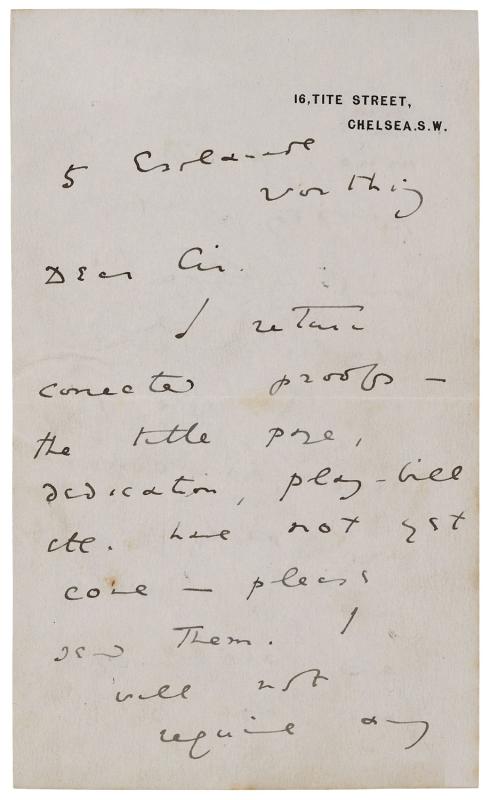 16, TITE STREET,
CHELSEA. S. W.
5 Esplanade
Worthing
Dear Sir.
I return
corrected proofs —
the title page,
dedication, play-bill
etc. have not yet
come — please
send them. I
will not
require any